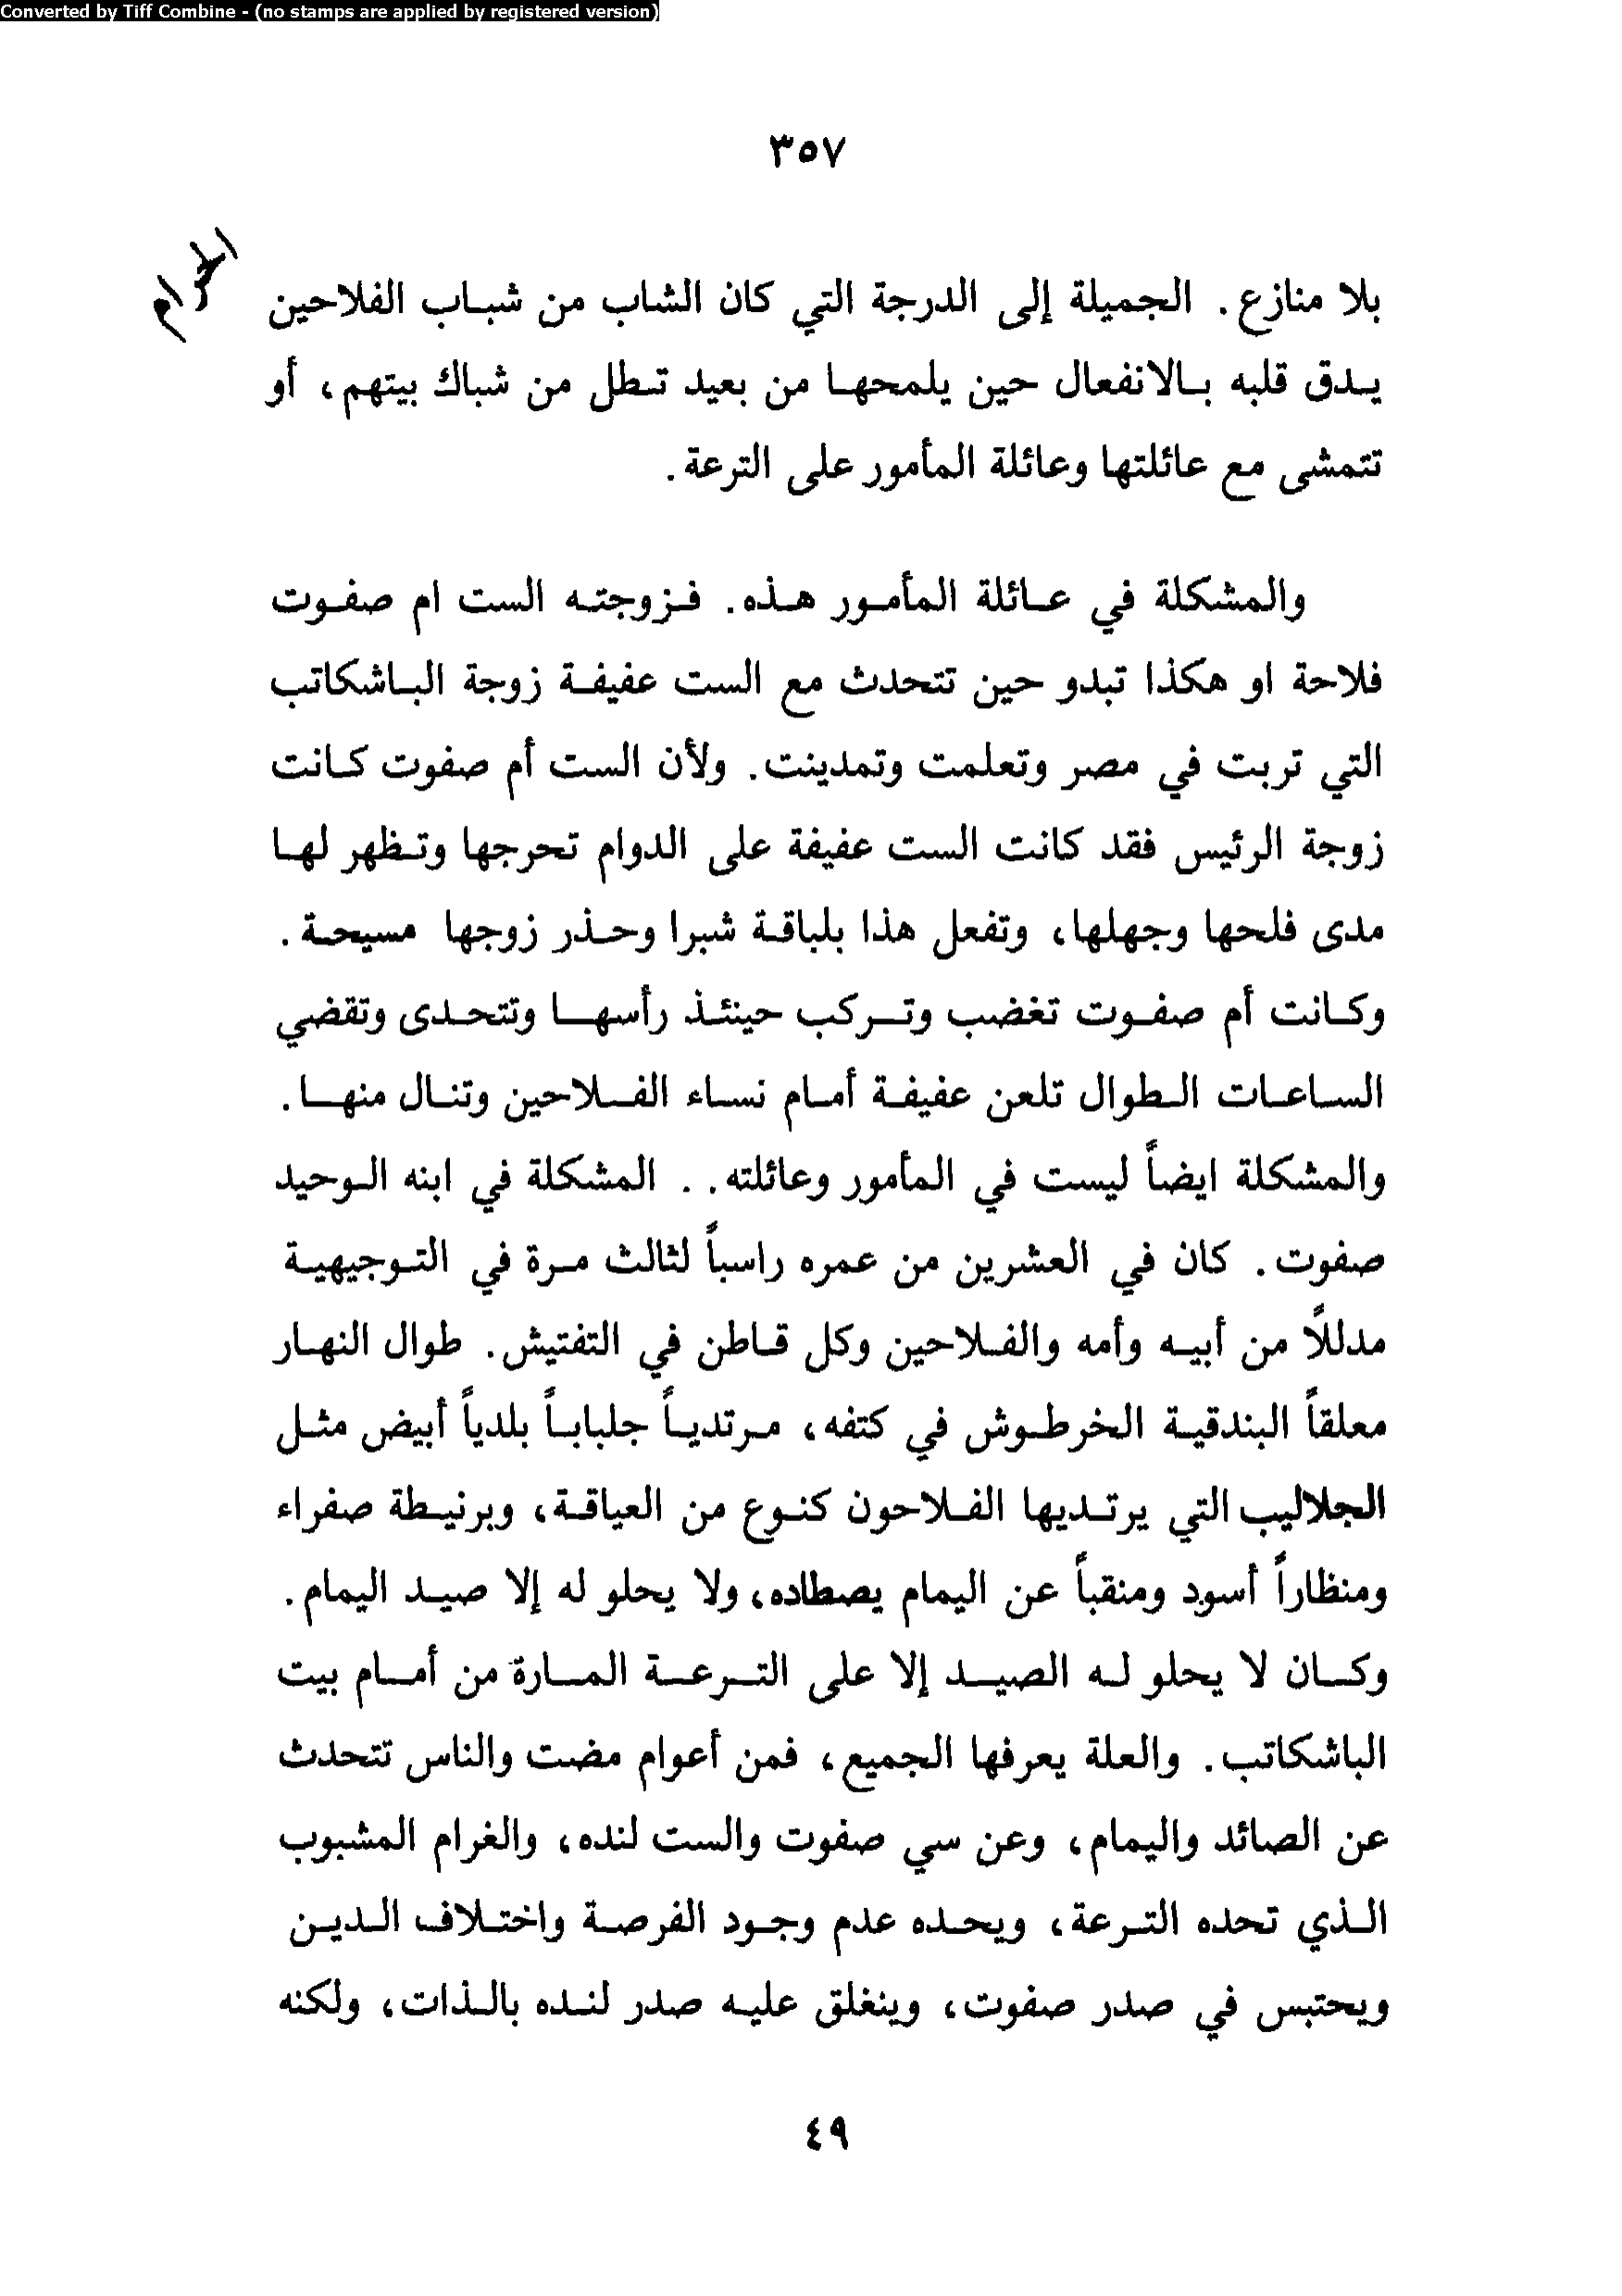 Converted by Tiff Combine - (no stamps are applied by registered version)
٣٥٧
الحرام
بلا منازع. الجميلة إلى الدرجة التي كان الشاب من شباب الفلاحين
يدق قلبه بالانفعال حين يلمحها من بعيد تطل من شباك بيتهم، أو
تتمشى مع عائلتها وعائلة المأمور على الترعة.
والمشكلة في عائلة المأمور هذه. فزوجته الست ام صفوت
فلاحة او هكذا تبدو حين تتحدث مع الست عفيفة زوجة الباشكاتب
التي تربت في مصر وتعلمت وتمدينت. ولأن الست أم صفوت كانت
زوجة الرئيس فقد كانت الست عفيفة على الدوام تحرجها وتظهر لها
مدى فلحها وجهلها، وتفعل هذا بلباقة شبرا وحذر زوجها مسيحة.
وكانت أم صفوت تغضب وتركب حينئذ رأسها وتتحدى وتقضي
الساعات الطوال تلعن عفيفة أمام نساء الفلاحين وتنال منها.
والمشكلة ايضاً ليست في المأمور وعائلته.. المشكلة في ابنه الوحيد
صفوت. كان في العشرين من عمره راسباً لثالث مرة في التوجيهية
مدللاً من أبيه وأمه والفلاحين وكل قاطن في التفتيش. طوال النهار
معلقاً البندقية الخرطوش في كتفه، مرتدياً جلباباً بلدياً أبيض مثل
الجلاليب التي يرتديها الفلاحون كنوع من العياقة، وبرنيطة صفراء
ومنظاراً أسود ومنقباً عن اليمام يصطاده، ولا يحلو له إلا صيد اليمام.
وكان لا يحلو له الصيد إلا على الترعة المارة من أمام بيت
الباشكاتب. والعلة يعرفها الجميع، فمن أعوام مضت والناس تتحدث
عن الصائد واليمام، وعن سي صفوت والست لنده، والغرام المشبوب
الذي تحده الترعة، ويحده عدم وجود الفرصة واختلاف الدين
ويحتبس في صدر صفوت، وينغلق عليه صدر لنده بالذات، ولكنه
٤٩